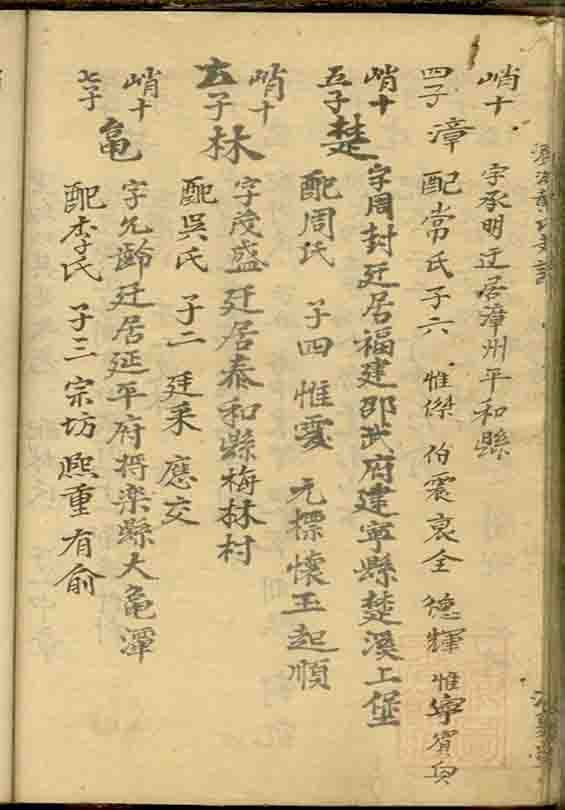 峭十
四子 漳
字承明迁居漳州平和縣
配常氏子六 惟傑 伯震 衷全 德輝 惟寧 賓
峭十
五子 楚
字周封廷居福建邵武府建寧縣楚溪上堡
配周氏 子四 惟雯 元標 懷玉 起順
峭十
六子 林
字茂盛廷居泰和縣梅林村
配吳氏 子二 廷釆 應交
峭十
七子 亀
字允齡廷居延平府將楽縣大亀潭
配李氏 子三 宗坊 熙重 有俞